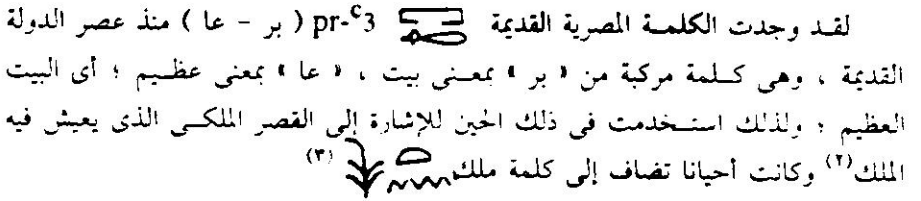 لقد وجدت الكلمة المصرية القديمة pr-ꜥ3 ( بر - عا ) منذ عصر الدولة
القديمة ، وهى كلمة مركبة من « بر » بمعنى بيت ، « عا » بمعنى عظيم ؛ أى البيت
العظيم ؛ ولذلك استخدمت فى ذلك الحين للإشارة إلى القصر الملكى الذى يعيش فيه
الملك(٢) وكانت أحيانا تضاف إلى كلمة ملك (٣)